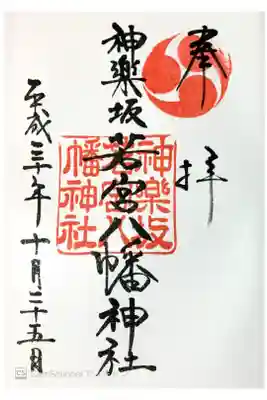 奉拝
神楽坂若宮八幡神社
神楽坂
若宮八
幡神社
平成三十年十月二十五日
CS CamScanner